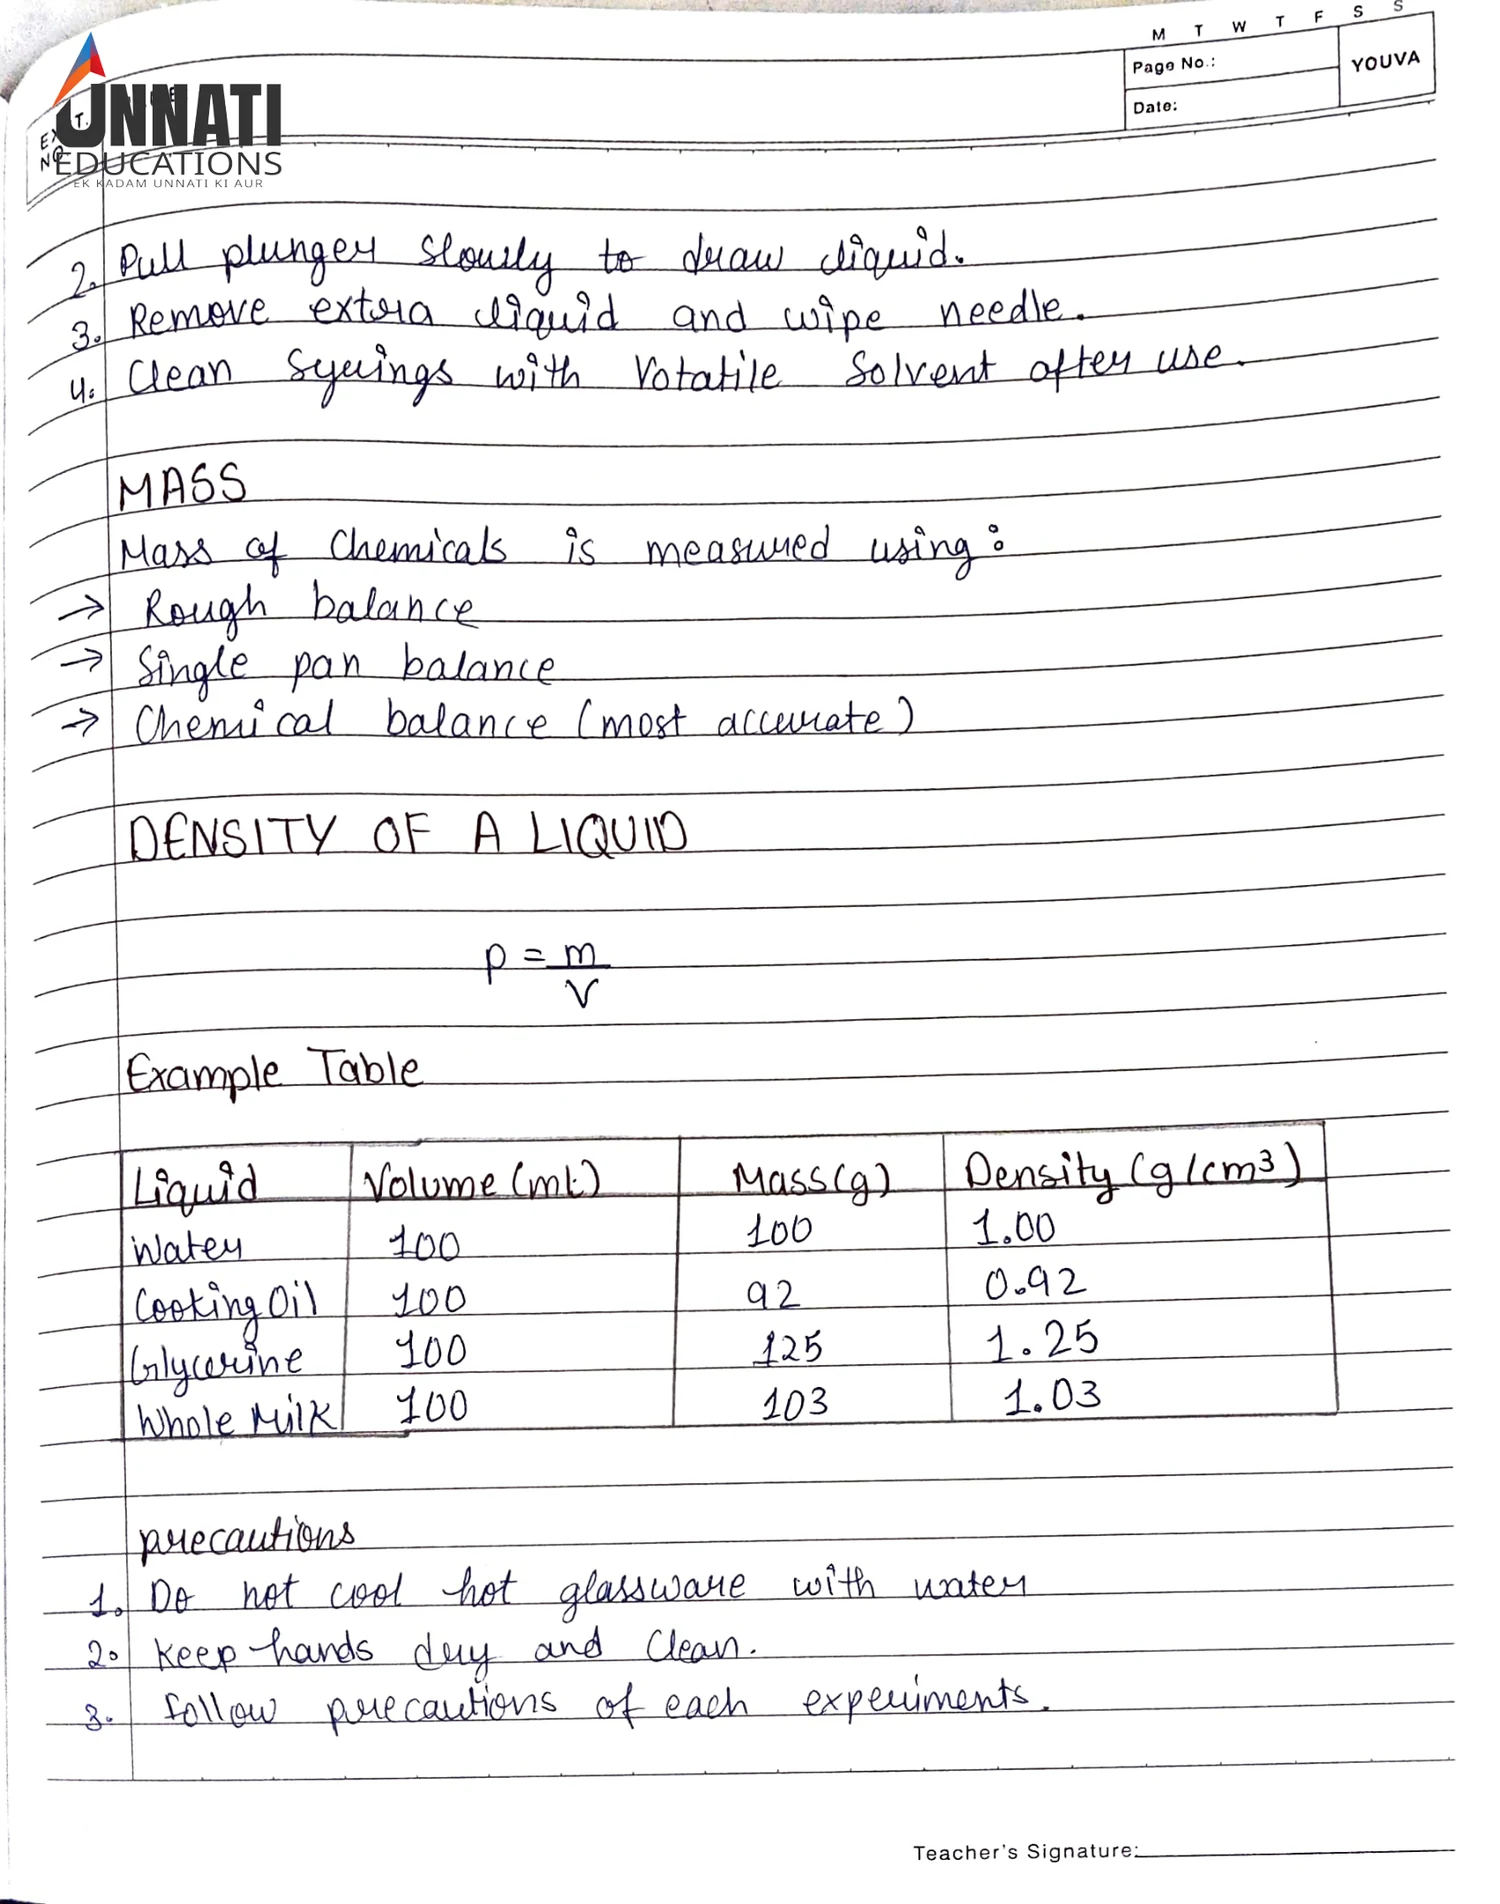 M T W T F S S
Page No.:
YOUVA
Date:
UNNATI
EDUCATIONS
EK KADAM UNNATI KI AUR
2. Pull plunger slowly to draw liquid.
3. Remove extra liquid and wipe needle.
4. Clean Syrings with Votatile Solvent after use.
MASS
Mass of Chemicals is measured using:
→ Rough balance
→ Single pan balance
→ Chemical balance (most accurate)
DENSITY OF A LIQUID
ρ = m
V
Example Table
Liquid Volume (mL) Mass(g) Density (g/cm3)
Water 100 100 1.00
Cooking Oil 100 92 0.92
Glycerine 100 125 1.25
Whole Milk 100 103 1.03
precautions
1. Do not cool hot glassware with water
2. Keep hands dry and Clean.
3. follow precautions of each experiments.
Teacher's Signature: